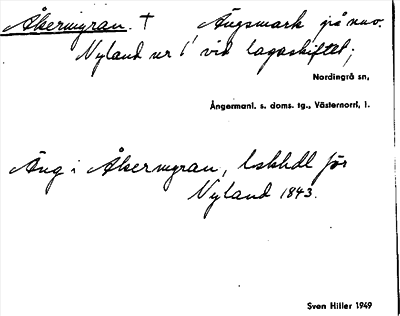 Åkermyran. † Ängsmark på nuv.
Nyland nr 1 vid lagaskiftet;
Nordingrå sn,
Ångermanl. s. doms. tg., Västernorrl. l.
Äng i Åkermyran, lskhdl för
Nyland 1843.
Sven Hiller 1949